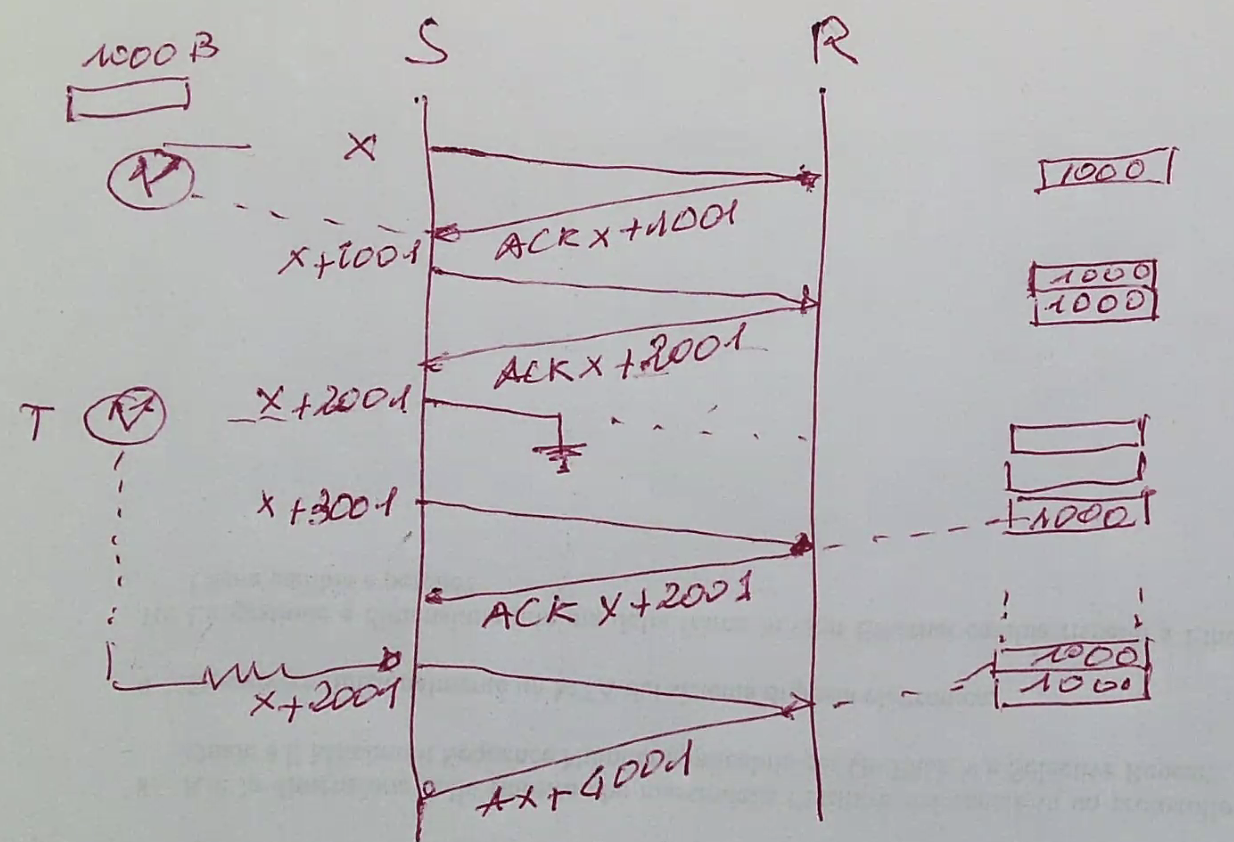 1000 B
S
R
X
1000
ACK X+1001
X+1001
1000
1000
ACK X+2001
T
X+2001
X+3001
1000
ACK X+2001
1000
1000
X+2001
AX+4001